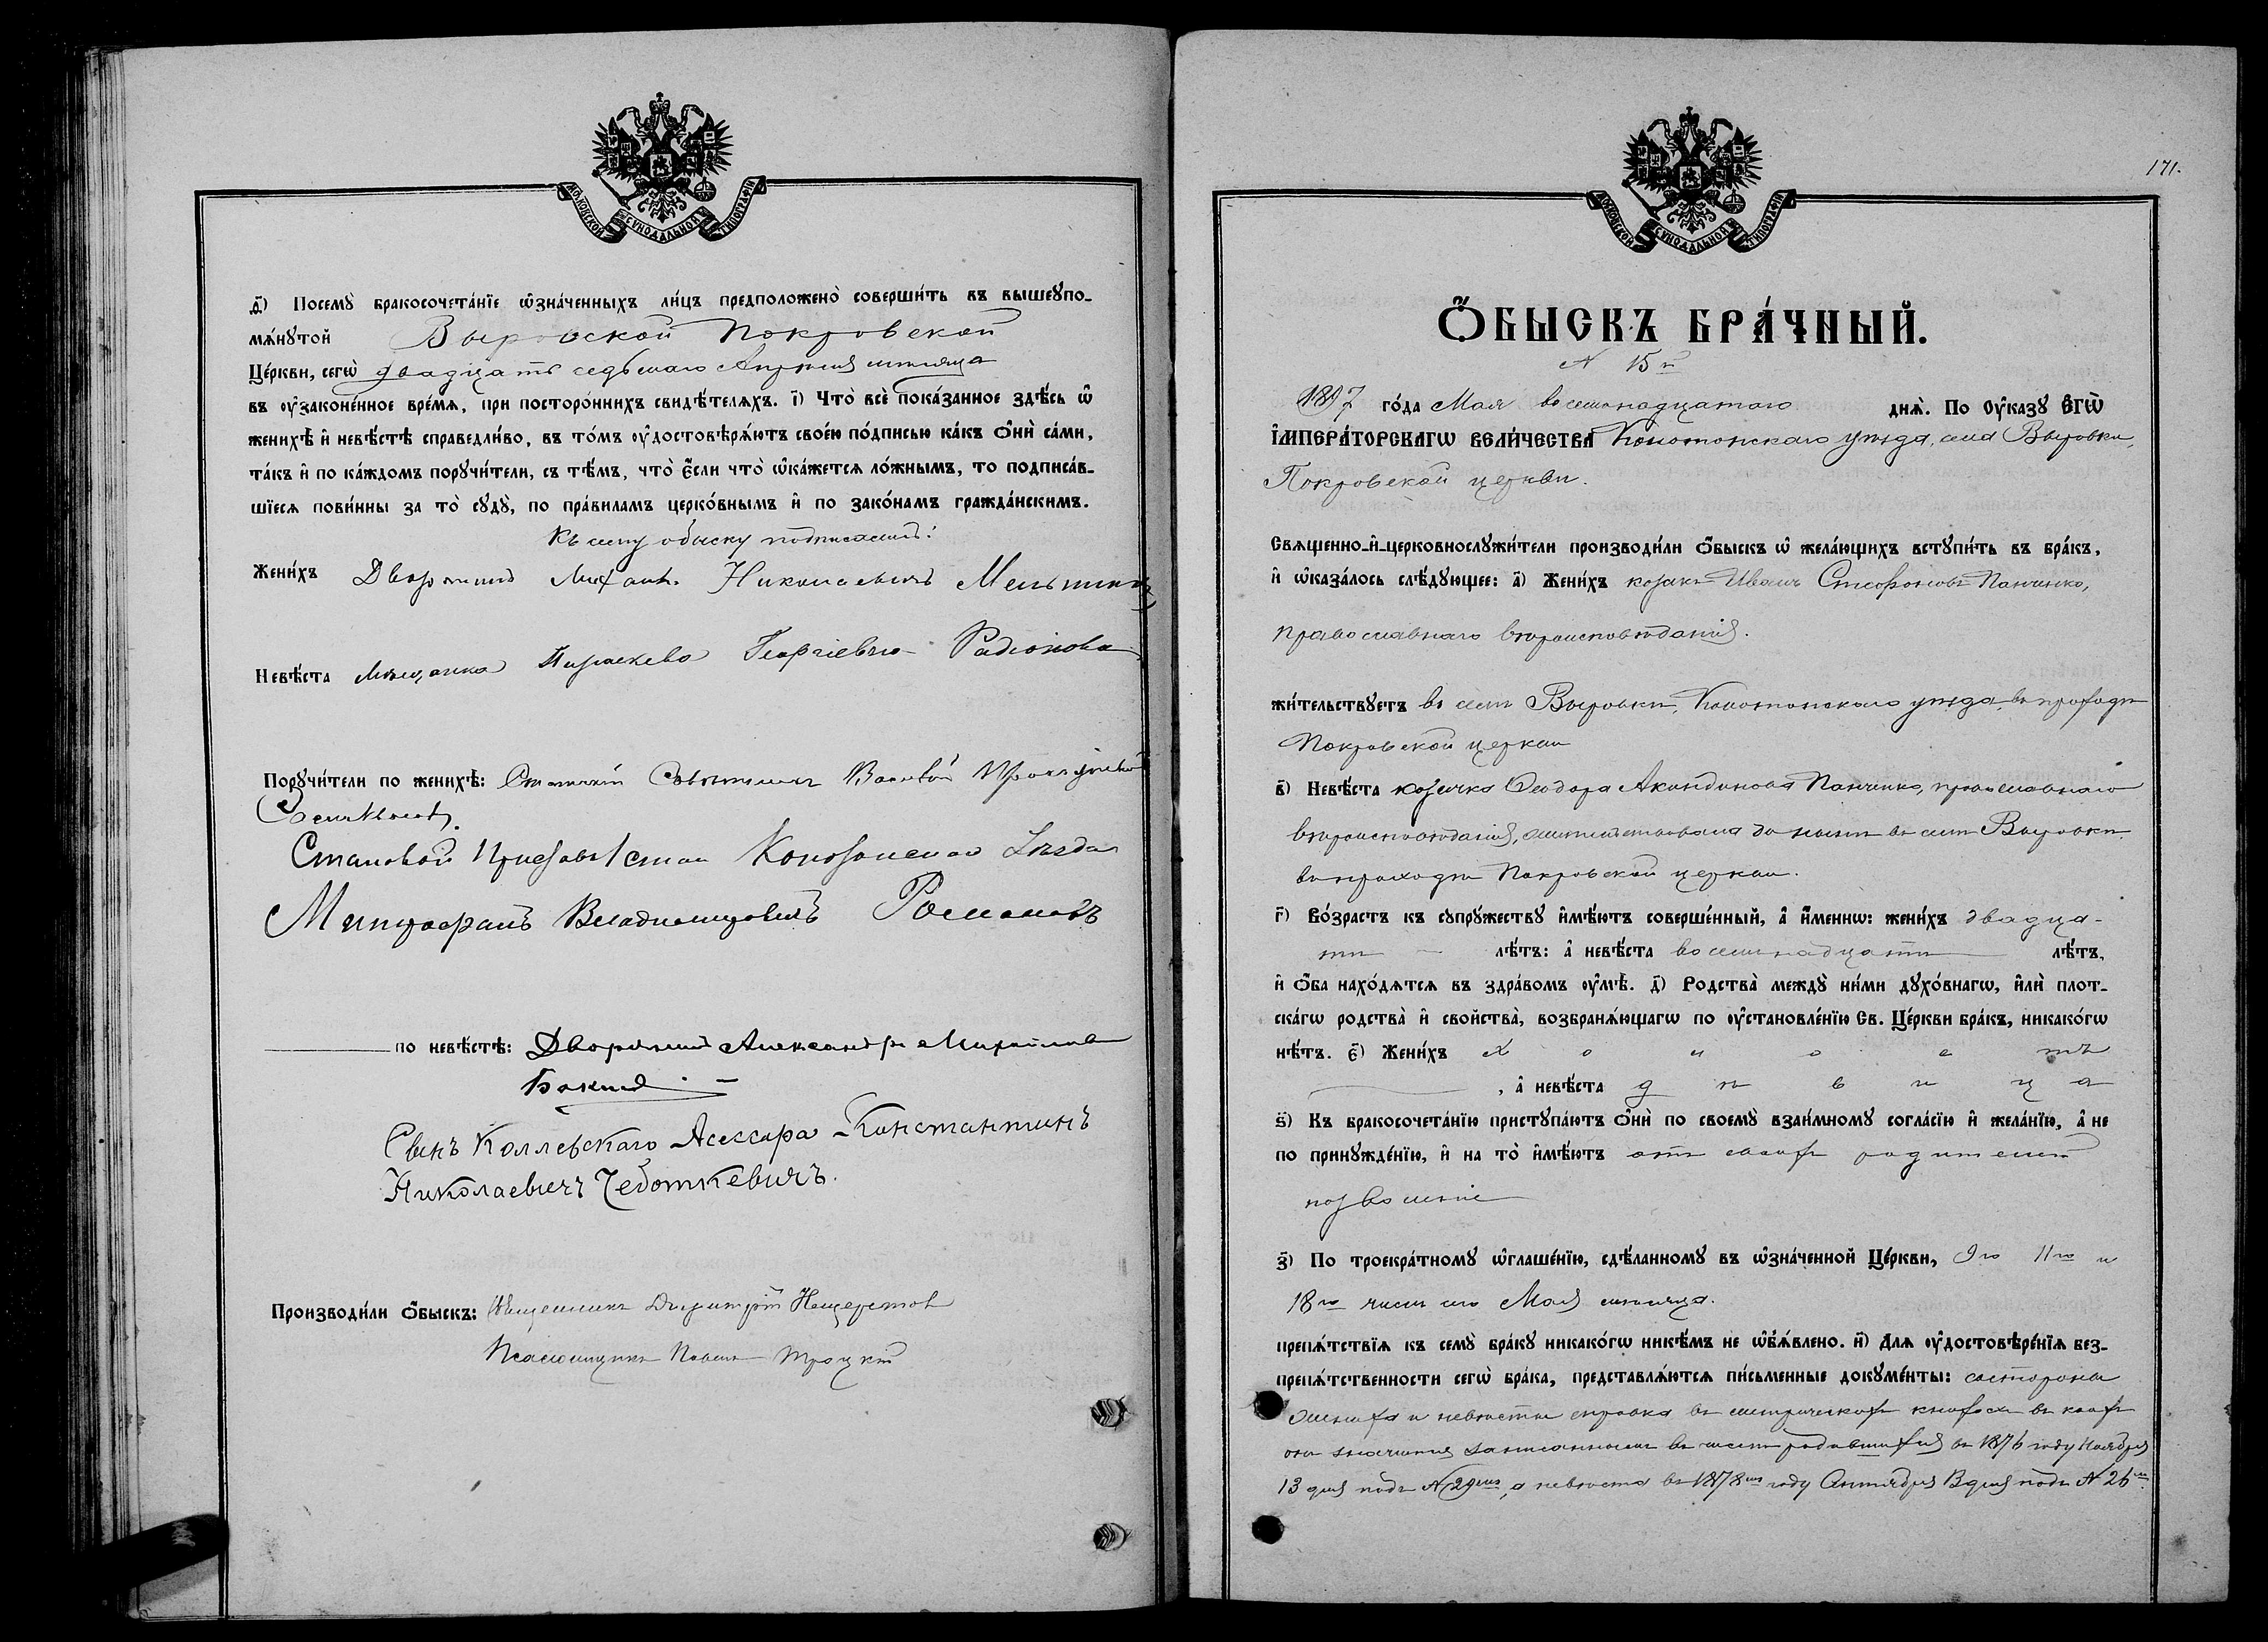 МОСКОВСКОЙ СУНОДАЛЬНОЙ ТИПОГРАФІИ
Посемꙋ̀ бракосочета́нїе ѡ҆зна́ченныхъ ли́цъ предположено̀ соверши́ть въ вышеꙋпо-
мѧ́нꙋтой Выровской Покровской
Це́ркви, сегѡ̀ двадцать седьмаго Апрѣля мѣсяца
въ ᲂу҆законе́нное вре́мѧ, при посторо́ннихъ свидѣ́телѧхъ. і҃) Что̀ всѐ пока́занное здѣ́сь ѡ҆
женихѣ̀ и҆ невѣ́стѣ справедли́во, въ то́мъ ᲂу҆достовѣрѧ́ютъ свое́ю по́дписью ка́къ ѻ҆нѝ са́ми,
та́къ и҆ по ка́ждомъ порꙋчи́тели, съ тѣ́мъ, что̀ є҆́сли что̀ ѡ҆ка́жетсѧ ло́жнымъ, то подписа́в-
шїесѧ пови́нны за то̀ сꙋдꙋ̀, по пра́виламъ церко́внымъ и҆ по зако́намъ гражда́нскимъ.
Къ сему обыску подписались:
Жени́хъ Дворянинъ Николаевичъ
Невѣ́ста Мѣщанка Параскева Георгіевна Радіонова
Порꙋчи́тели по женихѣ̀: Статскій Совѣтникъ
Становой Приставъ 1 стана Конотопскаго Уѣзда
Митрофанъ Владиміровичъ Романовъ
по невѣ́стѣ: Дворянинъ Александръ Михайловъ
Сынъ Коллежскаго Асессора Константинъ
Николаевичъ Чеботкевичъ.
Производи́ли ѻ҆́быскъ: Священникъ Димитрій
Псаломщикъ Павелъ Троцкій
171.
МОСКОВСКОЙ СУНОДАЛЬНОЙ ТИПОГРАФІИ
Ѻ҆́БЫСКЪ БРА́ЧНЫЙ.
№ 15й
1897 го́да Мая восемнадцатаго днѧ̀. По Оу҆казꙋ Е҆ГѠ̀
І҆МПЕРА́ТОРСКАГѠ ВЕЛИ́ЧЕСТВА Конотопскаго уѣзда, села Выровки,
Покровской церкви.
Свѧщенно-и҆-церковнослꙋжи́тели производи́ли ѻ҆́быскъ ѡ҆ жела́ющихъ встꙋпи́ть въ бра́къ,
и҆ ѡ҆каза́лось слѣ́дꙋющее: а҃) Жени́хъ козакъ Иванъ Стефановъ Панченко,
православнаго вѣроисповѣданія.
жи́тельствꙋетъ въ селѣ Выровкѣ, Конотопскаго уѣзда, въ приходѣ
Покровской церкви
в҃) Невѣ́ста козачка Ѳеодора Акиндинова Панченко, православнаго
вѣроисповѣданія, жительствовала до нынѣ въ селѣ Выровкѣ
въ приходѣ Покровской церкви.
г҃) Во́зрастъ къ сꙋпрꙋ́жествꙋ и҆мѣ́ютъ соверше́нный, а҆ и҆́меннѡ: жени́хъ двадца-
ти лѣ́тъ: а҆ невѣ́ста восемнадцати лѣ́тъ,
и҆ ѻ҆́ба нахо́дѧтсѧ въ здра́вомъ ᲂу҆мѣ̀. д҃) Родства̀ междꙋ̀ ни́ми дꙋхо́внагѡ, и҆лѝ плот-
ска́гѡ родства̀ и҆ свойства̀, возбранѧ́ющагѡ по ᲂу҆становле́нїю Св. Це́ркви бра́къ, никако́гѡ
нѣ́тъ. є҃) Жени́хъ холостъ
, а҆ невѣ́ста дѣвица
ѕ҃) Къ бракосочета́нїю пристꙋпа́ютъ ѻ҆нѝ по своемꙋ̀ взаи́мномꙋ согла́сїю и҆ жела́нїю, а҆ не
по принꙋжде́нїю, и҆ на то̀ и҆мѣ́ютъ отъ своихъ родителей
позволеніе
з҃) По троекра́тномꙋ ѡ҆глаше́нїю, сдѣ́ланномꙋ въ ѡ҆зна́ченной Це́ркви, 9го 11го и
18го чиселъ Мая мѣсяца.
препѧ́тствїѧ къ семꙋ̀ бра́кꙋ никако́гѡ никѣ́мъ не ѡ҆б̾ѧ́влено. и҃) Длѧ ᲂу҆достовѣре́нїѧ без-
препѧ́тственности сегѡ̀ бра́ка, представлѧ́ютсѧ пи́сьменные докꙋме́нты: со стороны
жениха и невѣсты справка въ метрическихъ книгахъ въ коихъ
они значатся записанными въ числѣ родившихся въ 1876 году Ноября
13 дня подъ №29мъ, а невѣста въ 1878мъ году Сентября дня подъ № 26